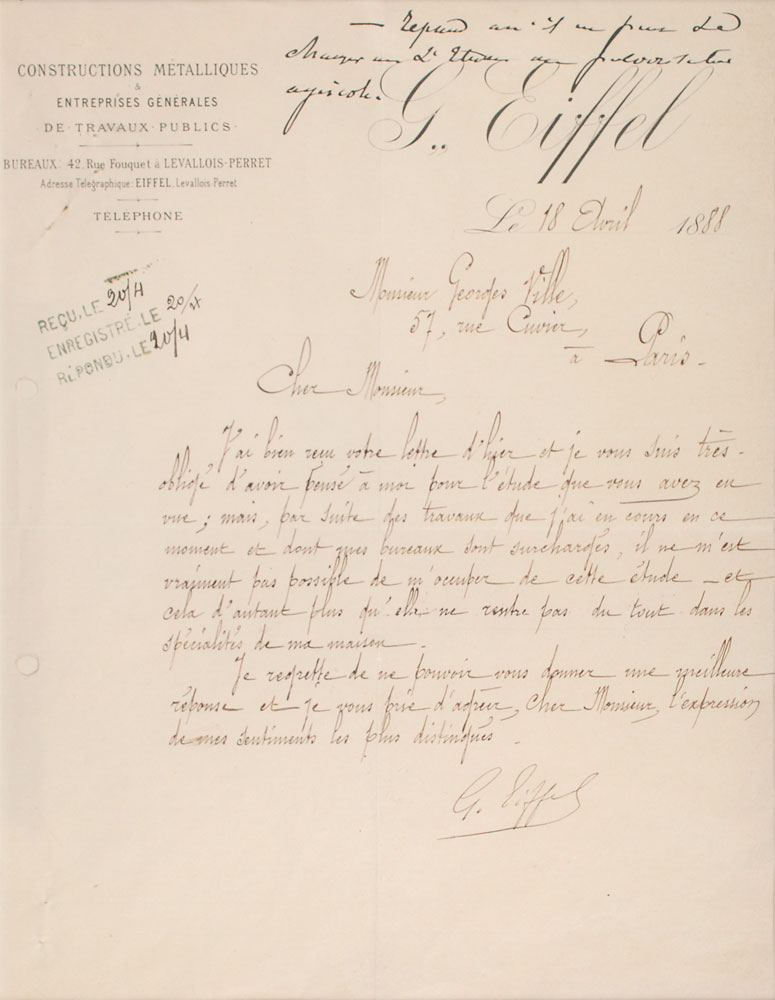 — répond qu'il ne peut se
charger de l'étude du pulvérisateur
agricole.
CONSTRUCTIONS MÉTALLIQUES
&
ENTREPRISES GÉNÉRALES
DE TRAVAUX PUBLICS
BUREAUX: 42, Rue Fouquet à LEVALLOIS-PERRET
Adresse Télégraphique: EIFFEL, Levallois-Perret
TÉLÉPHONE
G. Eiffel
Le 18 Avril 1888
REÇU, LE 20/4
ENREGISTRÉ, LE 20/4
RÉPONDU, LE 20/4
Monsieur Georges Ville,
57, rue Cuvier,
à Paris.
Cher Monsieur,
J'ai bien reçu votre lettre d'hier et je vous suis très-
obligé d'avoir pensé à moi pour l'étude que vous avez en
vue; mais, par suite des travaux que j'ai en cours en ce
moment et dont mes bureaux sont surchargés, il ne m'est
vraiment pas possible de m'occuper de cette étude — et
cela d'autant plus qu'elle ne rentre pas du tout dans les
spécialités de ma maison.
Je regrette de ne pouvoir vous donner une meilleure
réponse et je vous prie d'agréer, cher Monsieur, l'expression
de mes sentiments les plus distingués.
G. Eiffel